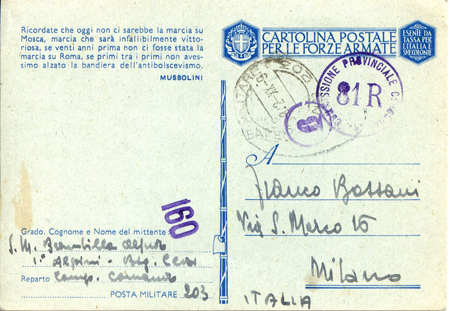 Ricordate che oggi non ci sarebbe la marcia su
Mosca, marcia che sarà infallibilmente vitto-
riosa, se venti anni prima non ci fosse stata la
marcia su Roma, se primi tra i primi non aves-
simo alzato la bandiera dell'antibolscevismo.
MUSSOLINI
CARTOLINA POSTALE
PER LE FORZE ARMATE
ESENTE DA
TASSA PER
L'ITALIA E
COLONIE
PROVINCIALE
81 R
A
Franco Bassani
Via S. Marco 16
Milano
ITALIA
160
Grado, Cognome e Nome del mittente
S. M. Brambilla
1° Alpini - Btg. Ceva
Reparto Comp. Comando
POSTA MILITARE 203